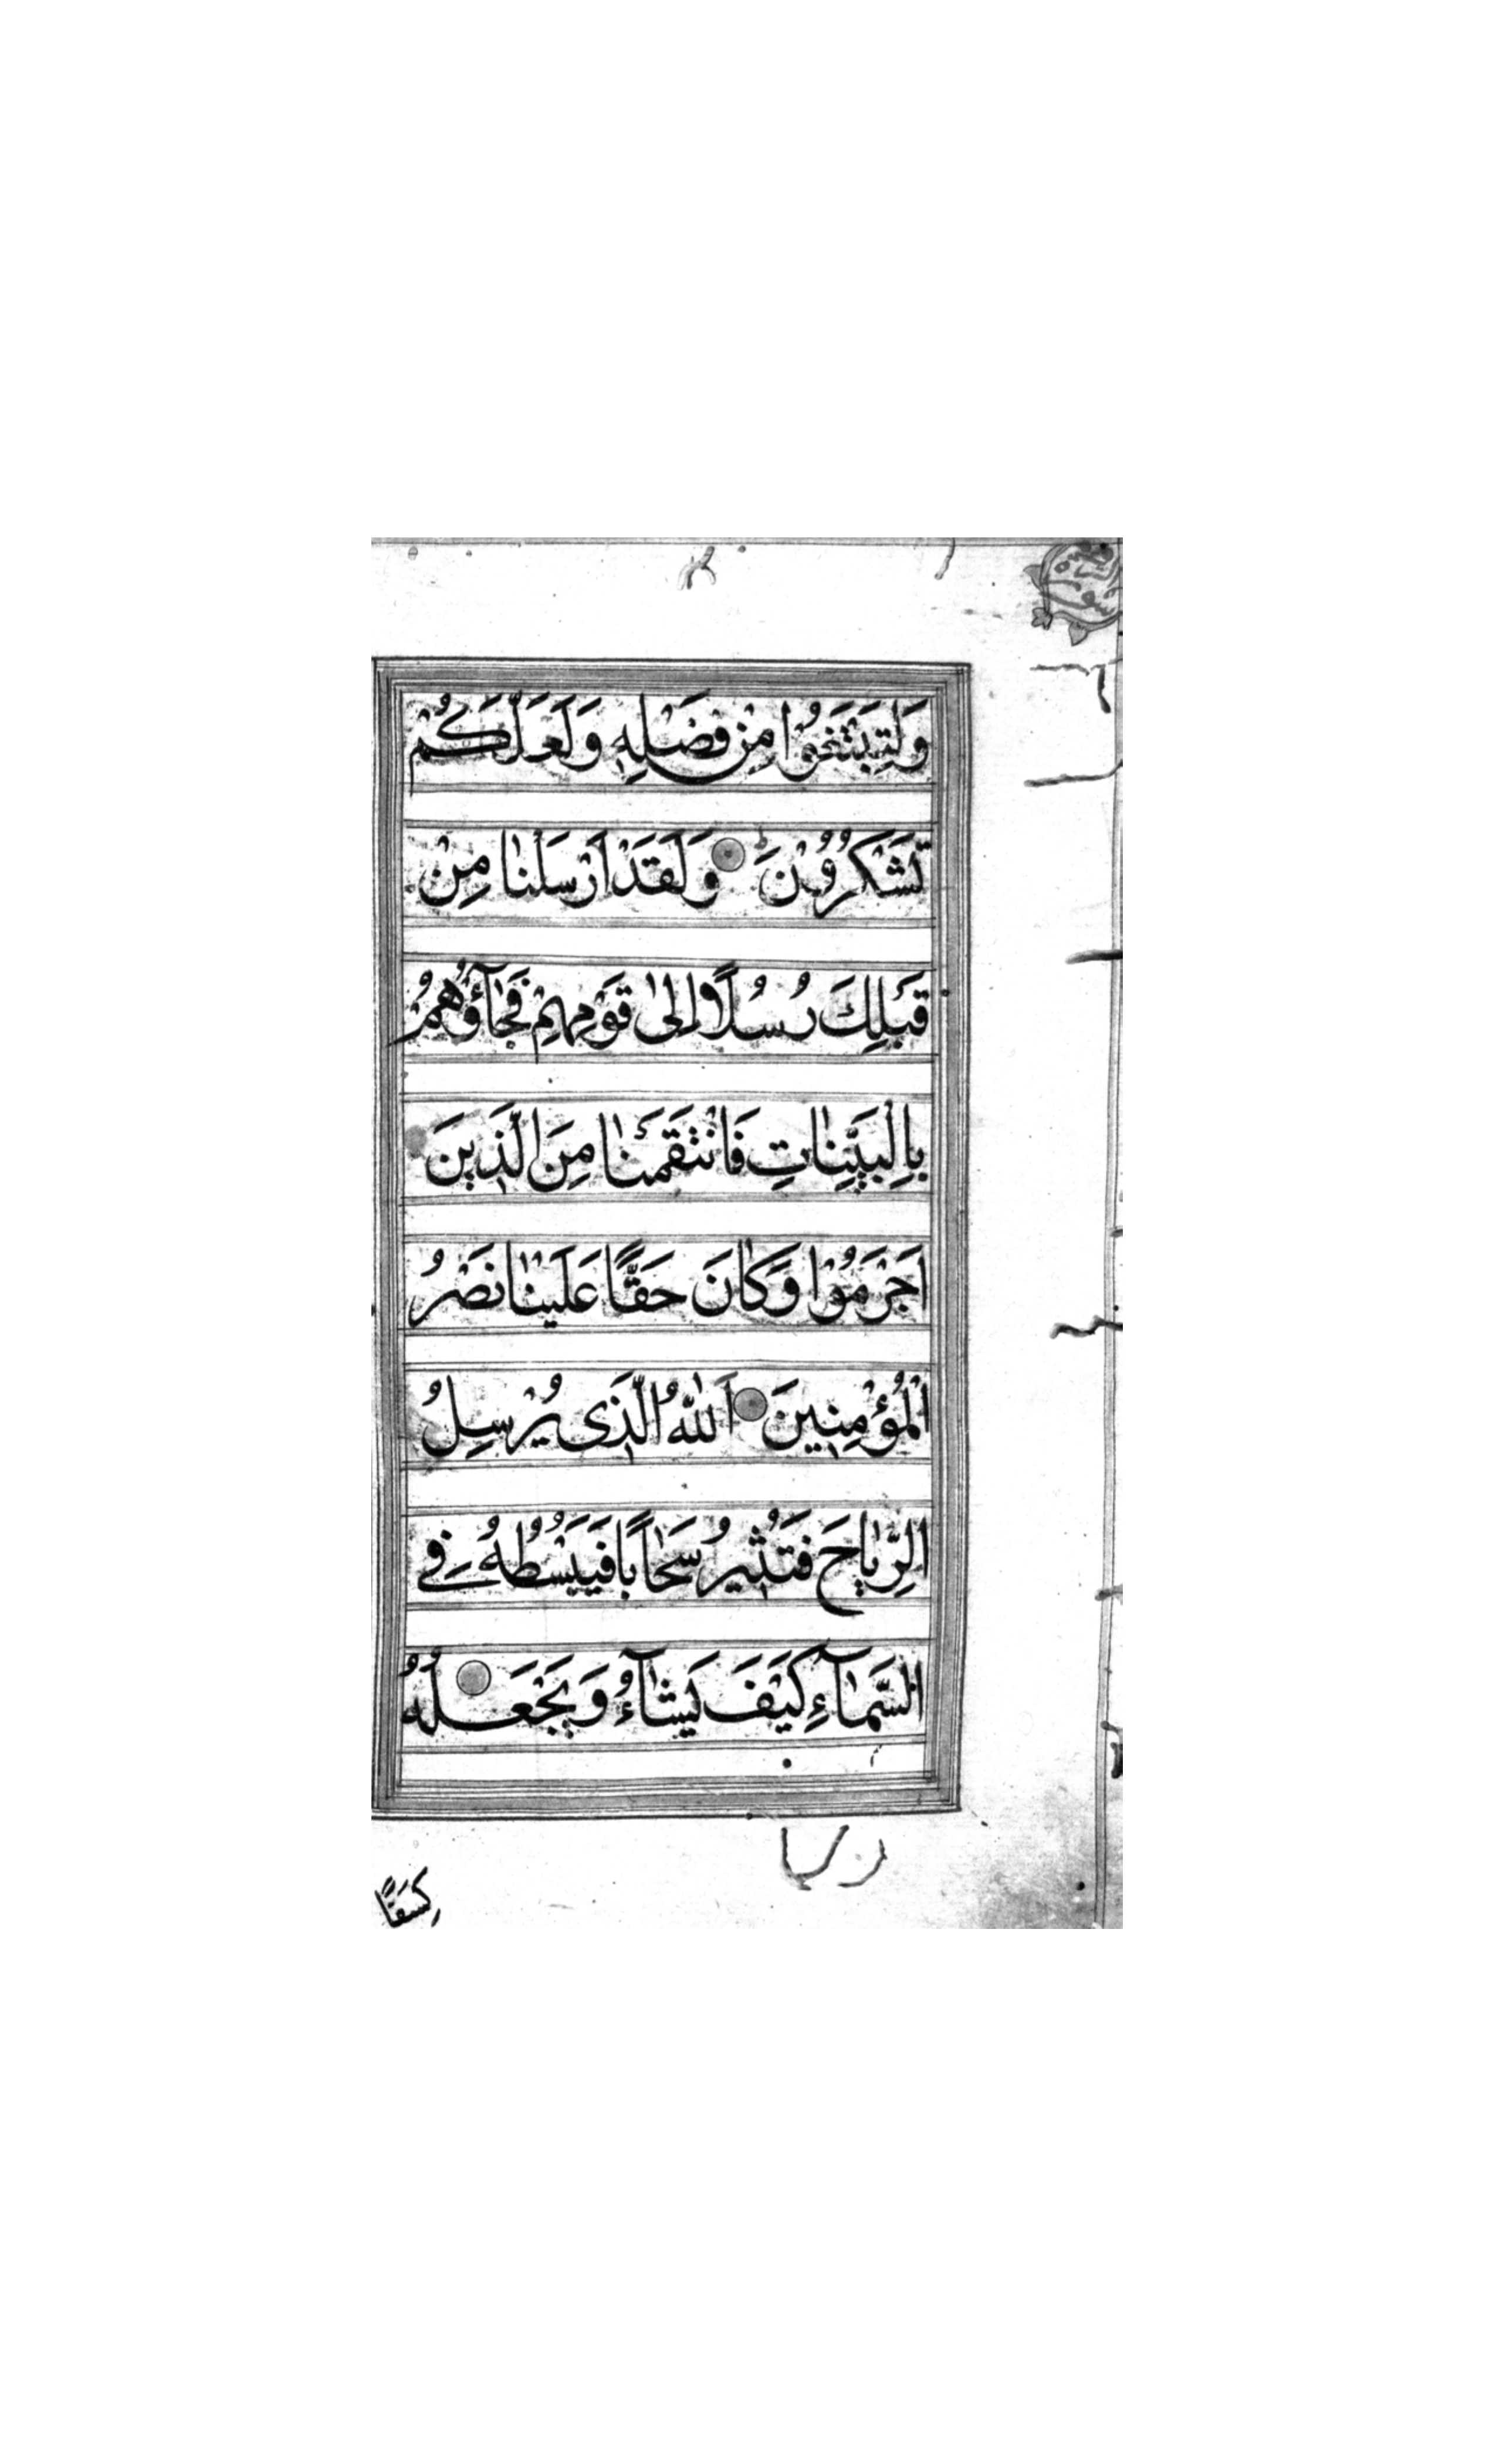 وَلِتَبْتَغُوا مِنْ فَضْلِهِ وَلَعَلَّكُمْ
تَشْكُرُوْنَ وَلَقَدْ اَرْسَلْنَا مِنْ
قَبْلِكَ رُسُلًا اِلىٰ قَوْمِهِمْ فَجَآؤُهُمْ
بِالْبَيِّنَاتِ فَانْتَقَمْنَا مِنَ الَّذِينَ
اَجْرَمُوْا وَكَانَ حَقًّا عَلَيْنَا نَصْرُ
الْمُؤْمِنِينَ اَللّٰهُ الَّذِى يُرْسِلُ
الرِّيَاحَ فَتُثِيرُ سَحَابًا فَيَبْسُطُهُ فِى
السَّمَآءِ كَيْفَ يَشَآءُ وَيَجْعَلُهُ
كِسَفًا